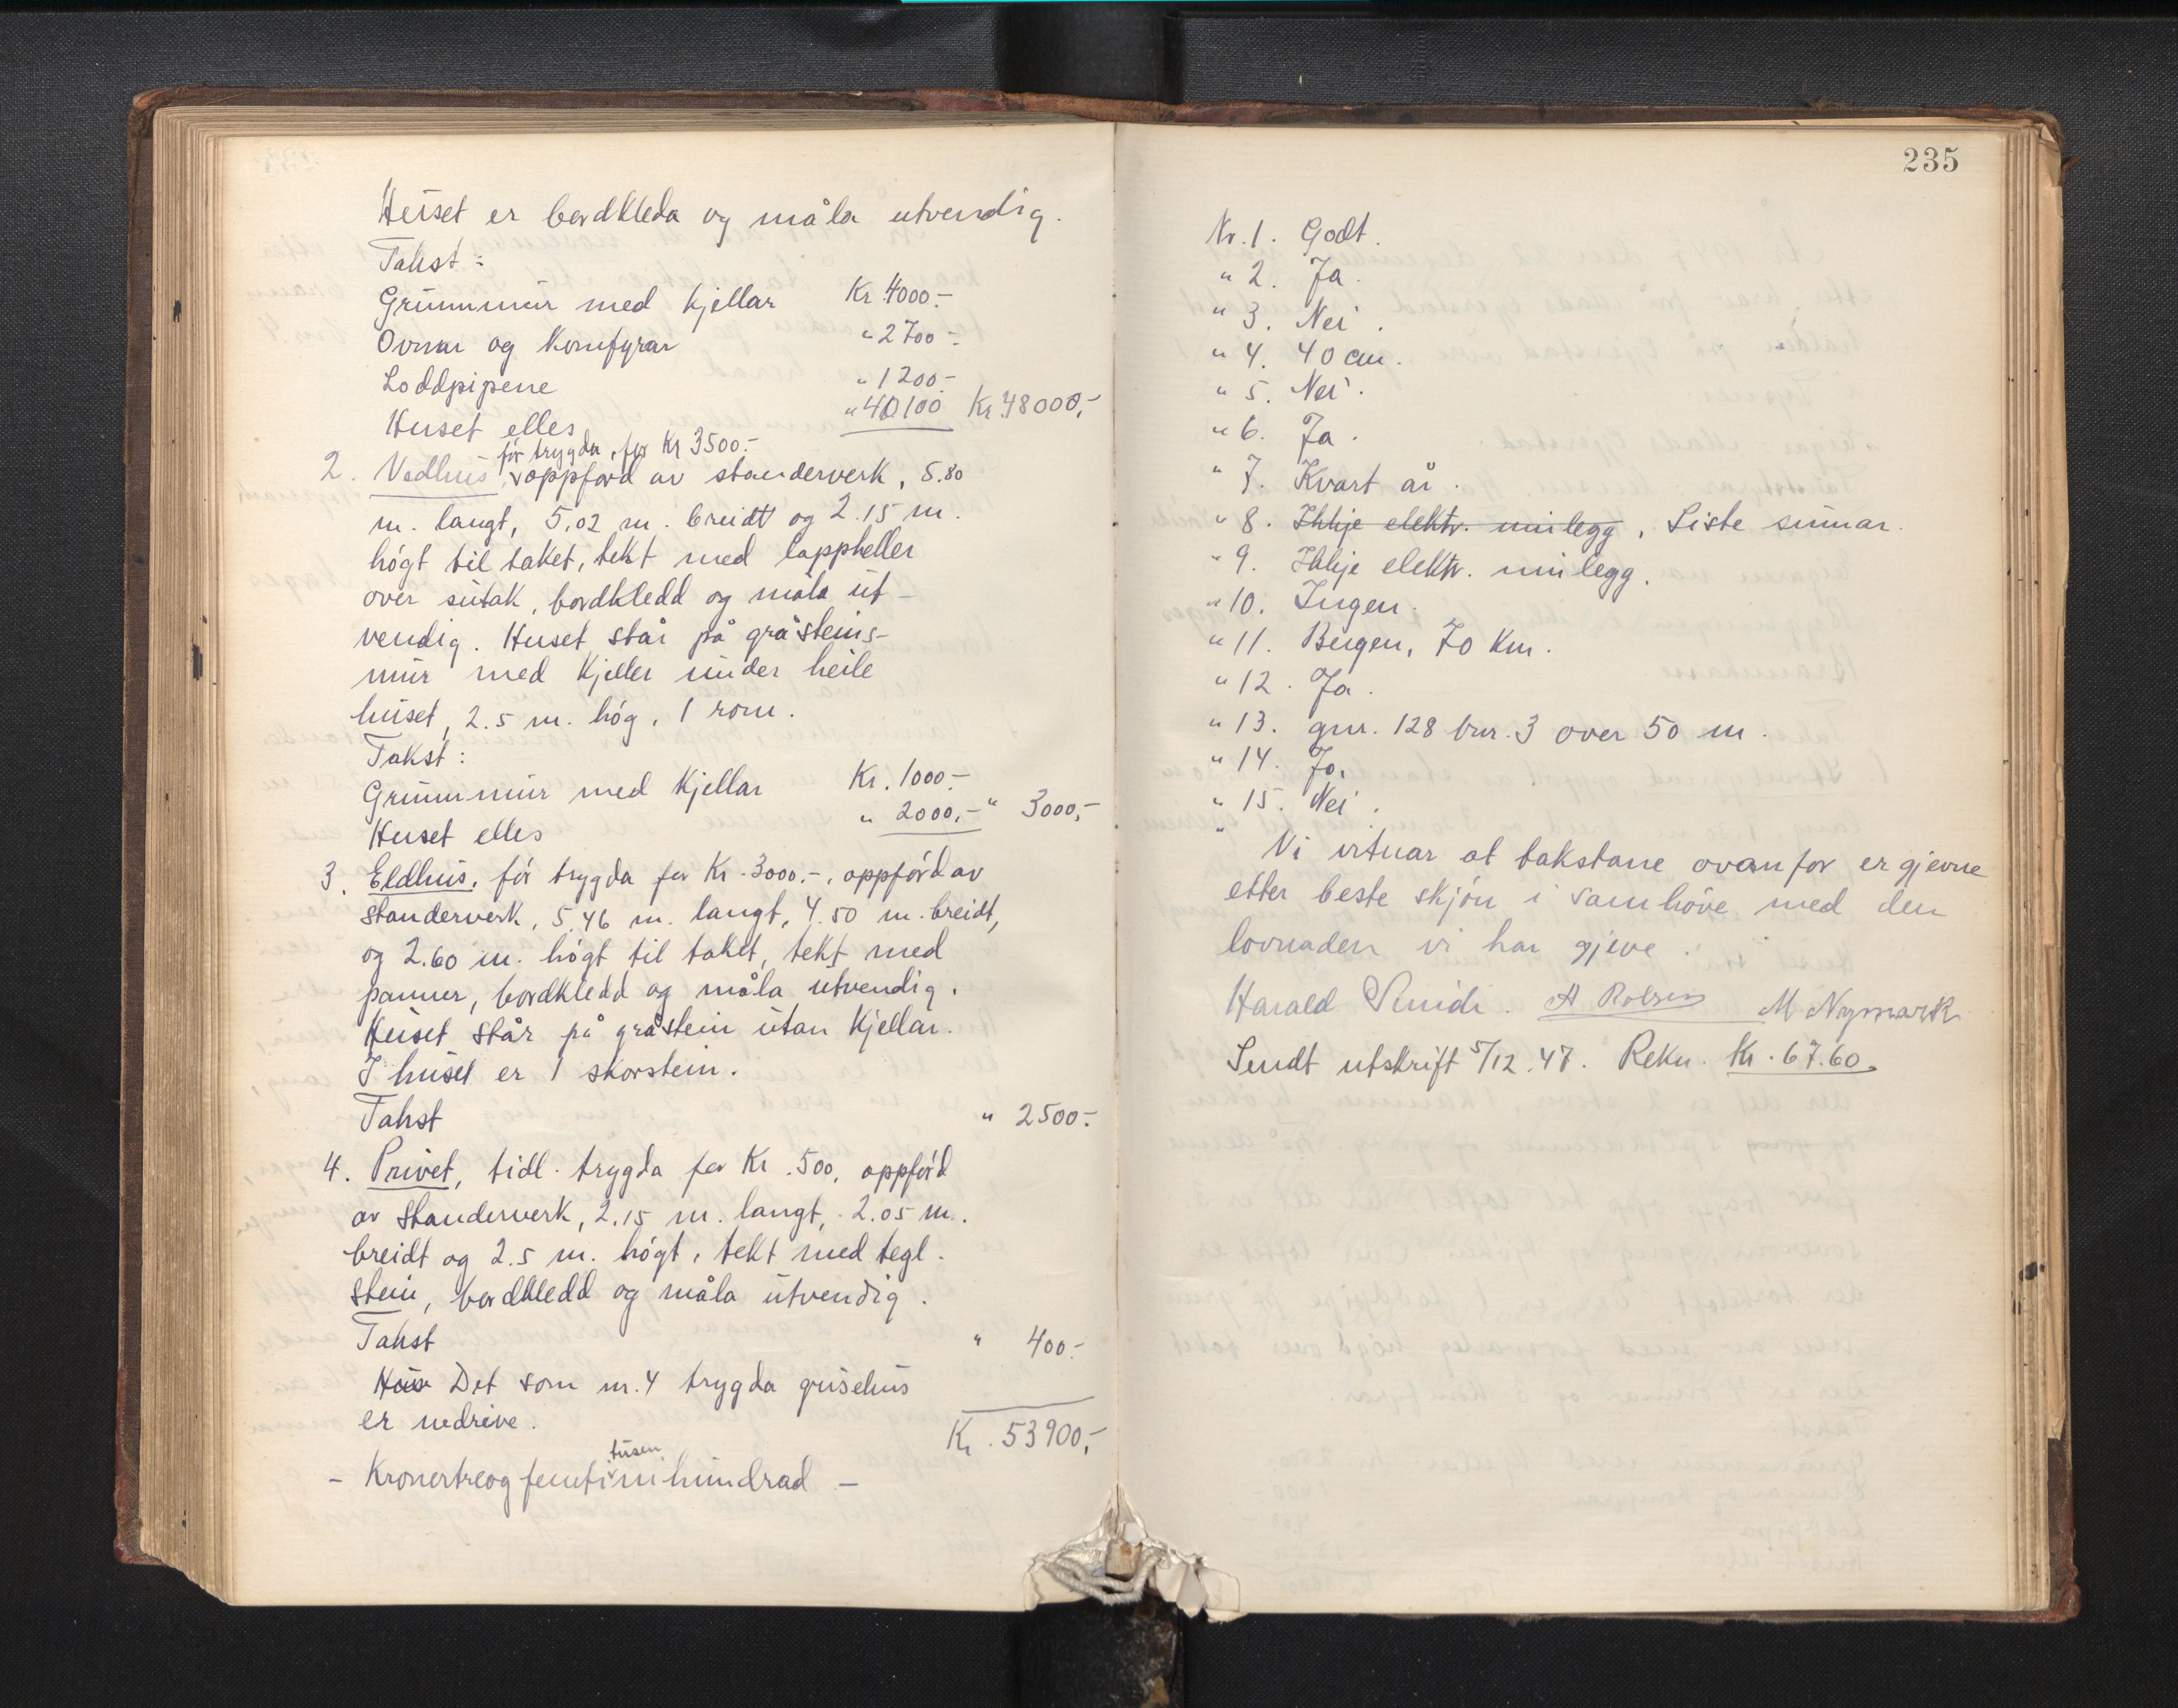 Huset er bordkleda og måla utvendig.
Takst:
Grunnmur med kjellar Kr. 4000.-
Ovnar og komfyrar " 2700.-
Loddpipene " 1200.-
Huset elles " 40100 Kr. 48000,-
för trygda, for Kr 3500.-
2. Vedhus, oppförd av standerverk, 5.80
m. langt, 5,02 m. breidt og 2.15 m.
högt til taket, tekt med lappheller
over sutak, bordkledd og måla ut-
vendig. Huset står på gråsteins-
mur med kjeller under heile
huset, 2.5 m. hög, 1 rom.
Takst:
Grunnmur med kjellar Kr. 1000.-
Huset elles " 2000,- " 3000,-
3. Eldhus, för trygda for Kr. 3000.-, oppförd av
standerverk, 5,46 m. langt, 4.50 m. breidt,
og 2.60 m. högt til taket, tekt med
panner, bordkledd og måla utvendig.
Huset står på gråstein utan kjellar.
I huset er 1 skorstein.
Takst " 2500.-
4. Privet, tidl. trygda for Kr. 500, oppförd
av standerverk, 2,15 m. langt, 2.05 m.
breidt og 2.5 m. högt, tekt med tegl-
stein, bordkledd og måla utvendig.
Takst " 400.-
Hus Det som nr. 4 trygda grisehus
er nedrive.
Kr. 53900,-
tusen
- Kronertreogfemti nihundrad -
235
Nr. 1. Godt.
" 2. Ja.
" 3. Nei.
" 4. 40 cm.
" 5. Nei.
" 6. Ja.
" 7. Kvart år.
" 8. Ikkje elektr. innlegg, Siste sumar.
" 9. Ikkje elektr. innlegg.
" 10. Ingen.
" 11. Bergen, 70 km.
" 12. Ja.
" 13. gnr. 128 bnr. 3 over 50 m.
" 14. Jo,
" 15. Nei.
" Vi vitnar at takstane ovanfor er gjevne
etter beste skjön i samhöve med den
lovnaden vi har gjeve.
Harald M Nymark
Sendt utskrift 5/12.47. Rekn. Kr. 67.60.